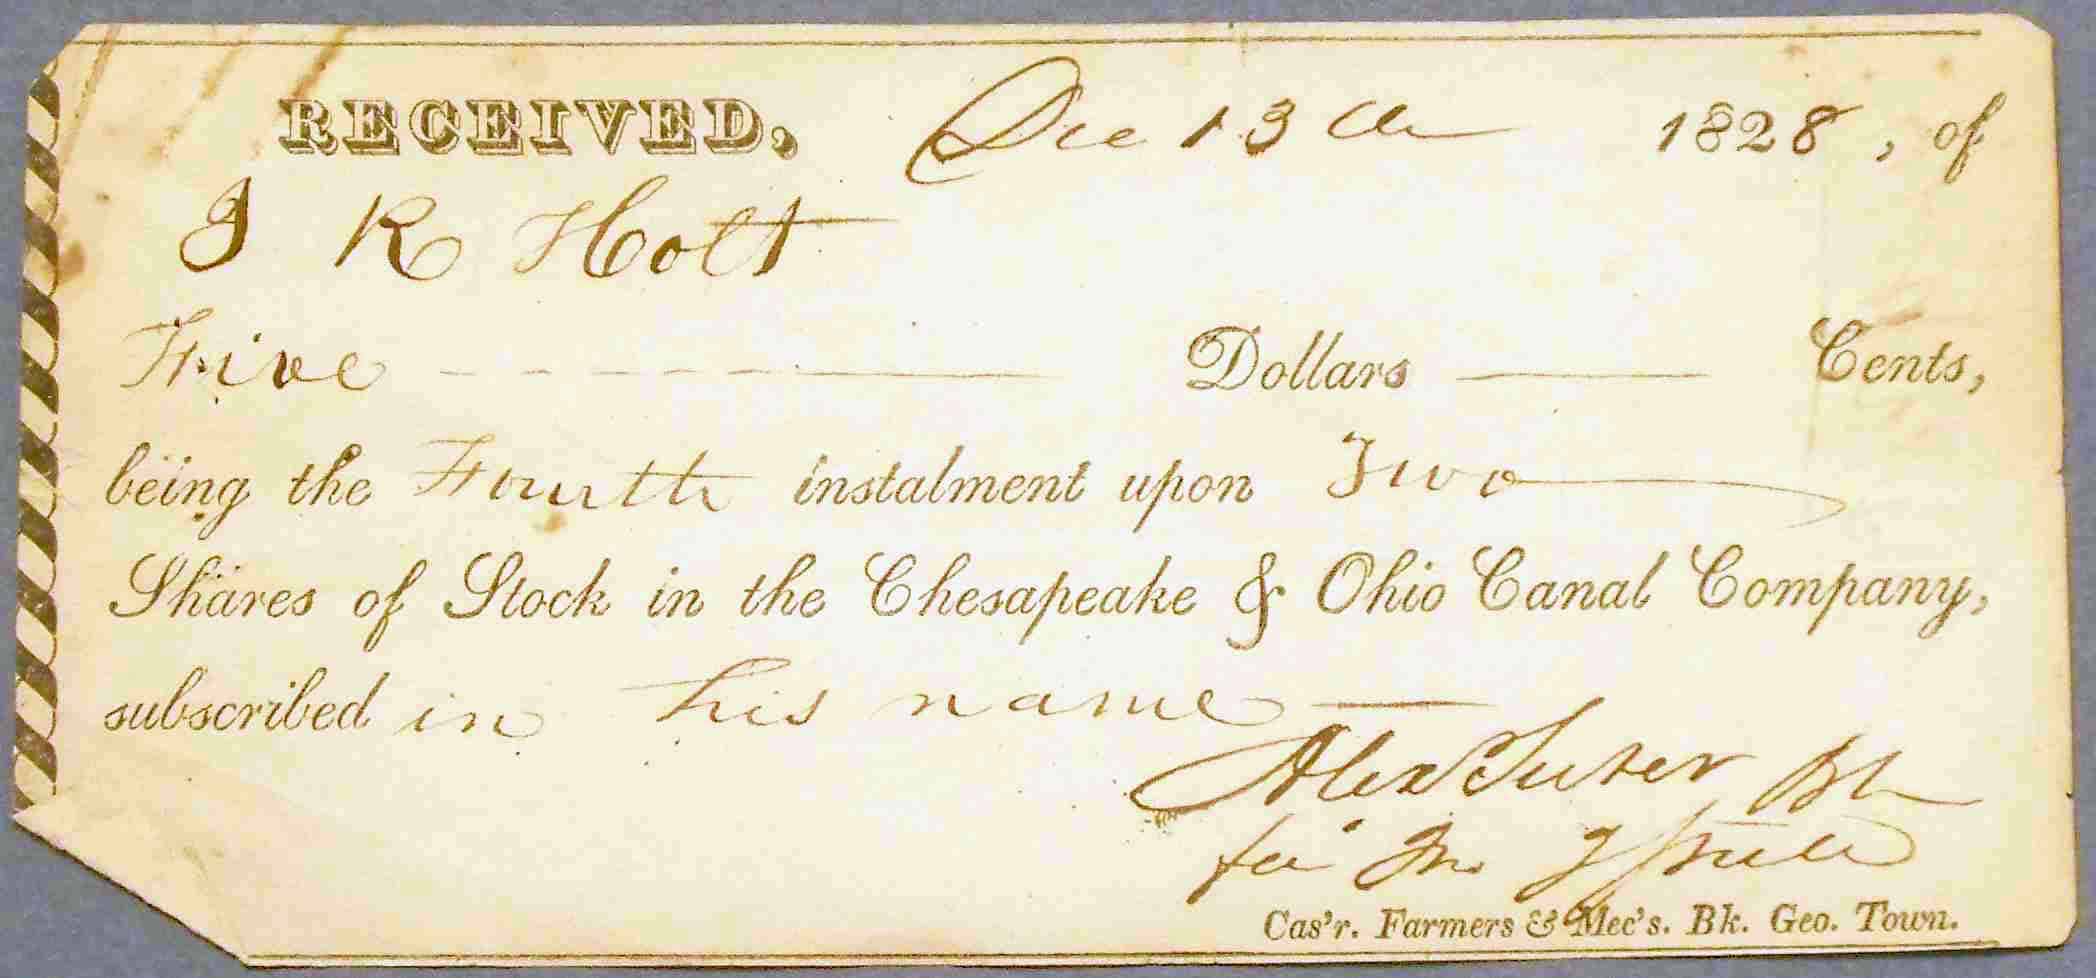 RECEIVED, Dec 13th 1828, of
J R Holt
Five Dollars Cents,
being the Fourth instalment upon Two
Shares of Stock in the Chesapeake & Ohio Canal Company,
subscribed in his name
Alex Suter
for Jno I
Cas'r. Farmers & Mec's. Bk. Geo. Town.